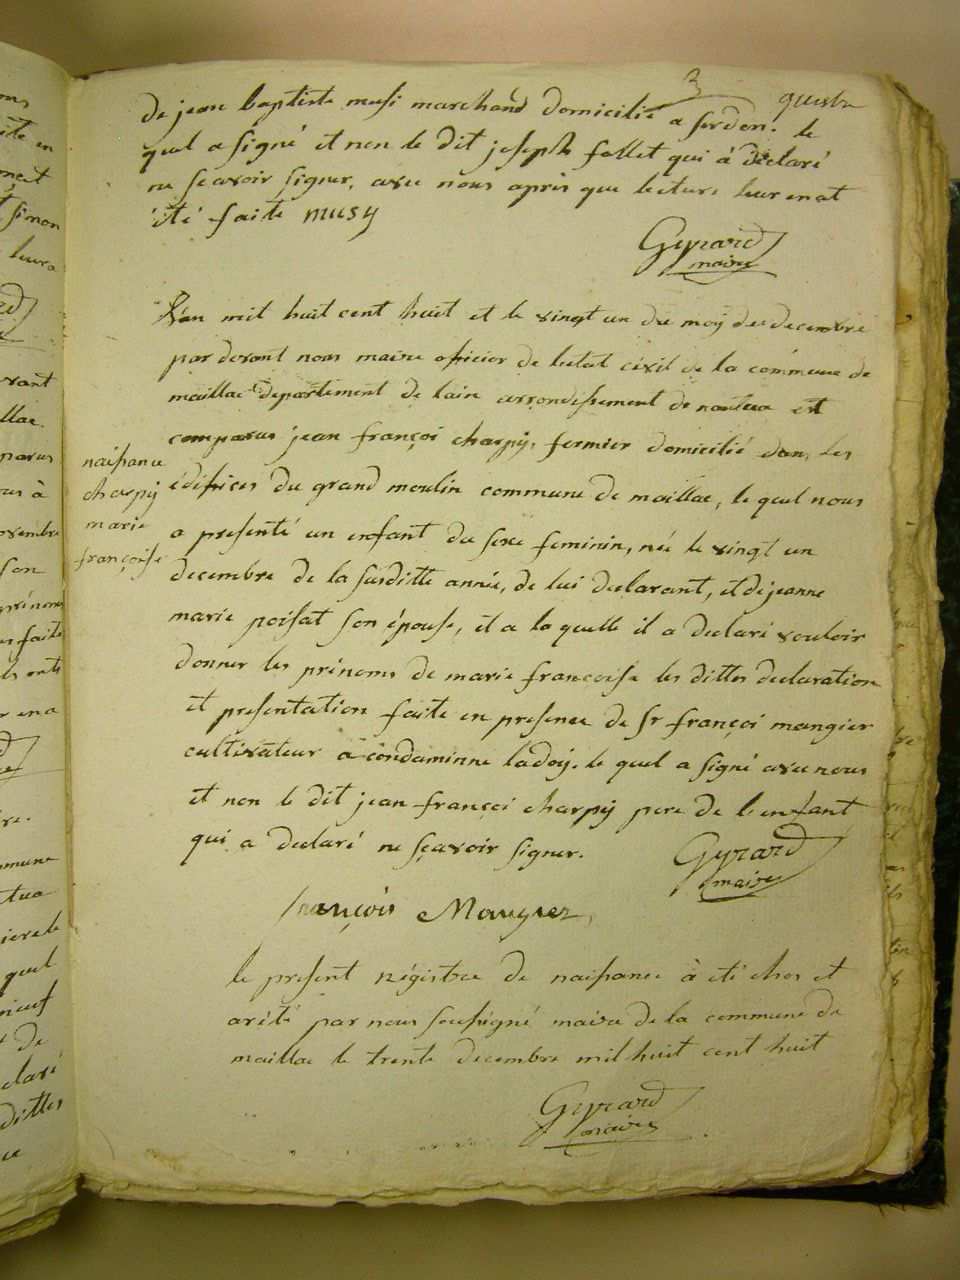 3
de jean baptiste musi marchand domicilié a serdon. le
quel a signé et non le dit joseph follet qui á déclaré
ne scavoir signer, avec nous apris que lecture leur enat
été faite musy
Gyrard
maire
L'an mil huit cent huit et le vingt un du moy de decembre
par devant nous maire officier de letat civil de la commune de
maillac departement de lain arrondissement de nantua est
comparus jean françoi charpy, fermier domicilié dans les
édifices du grand moulin commune de maillac, le quel nous
a presenté un enfant du sexe feminin, née le vingt un
decembre de la susditte année, de lui declarant, et de jeanne
marie poisat son épouse, et a la quelle il a declaré vouloir
donner les prénoms de marie francoise les dittes declaration
et presentation faite en presence de sr françoi mangier
cultivateur a condaminne ladoy. le quel a signé avec nous
et non le dit jean françoi charpy pere de l'enfant
qui a declaré ne sçavoir signer.
Gyrard
maire
françois Maugier
naissance
charpy
marie
françoise
le present régistre de naissance à eté clos et
arêté par nous soussigné maire de la commune de
maillac le trente decembre mil huit cent huit
Gyrard
maire